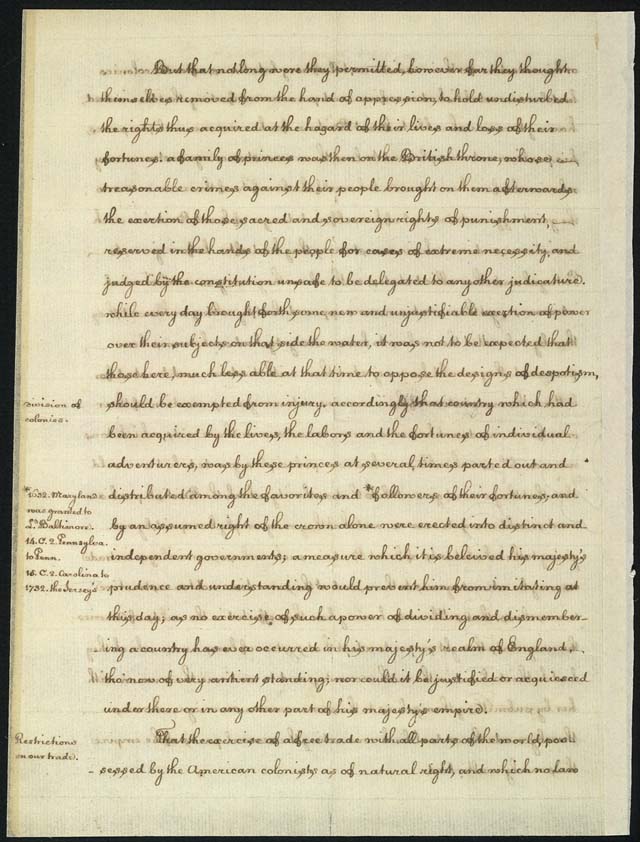 But that not long were they permitted, however far they thought
themselves removed from the hand of oppression, to hold undisturbed
the rights thus acquired at the hazard of their lives and loss of their
fortunes. a family of princes was then on the British throne, whose
treasonable crimes against their people brought on them afterwards
the exertion of those sacred and sovereign rights of punishment,
reserved in the hands of the people for cases of extreme necessity, and
judged by the constitution unsafe to be delegated to any other judicature.
while every day brought forth some new and unjustifiable exertion of power
over their subjects on that side the water, it was not to be expected that
those here, much less able at that time to oppose the designs of despotism,
should be exempted from injury. accordingly that country which had
been acquired by the lives, the labors and the fortunes of individual
adventurers, was by these princes at several times parted out and
distributed among the favorites and *followers of their fortunes; and
by an assumed right of the crown alone were erected into distinct and
independent governments; a measure which it is beleived his majesty's
prudence and understanding would prevent him from imitating at
this day; as no exercise of such a power of dividing and dismember-
ing a country has ever occurred in his majesty's realm of England,
tho' now of very antient standing; nor could it be justified or acquiesced
under there or in any other part of his majesty's empire.
That the exercise of a free trade with all parts of the world, pos-
-sessed by the American colonists as of natural right, and which no law
division of
colonies.
*1632. Maryland
was granted to
Ld. Baltimore.
14. C. 2. Pennsylva.
to Penn.
15. C. 2. Carolina to
1732. the Jersey's
Restrictions
on our trade.